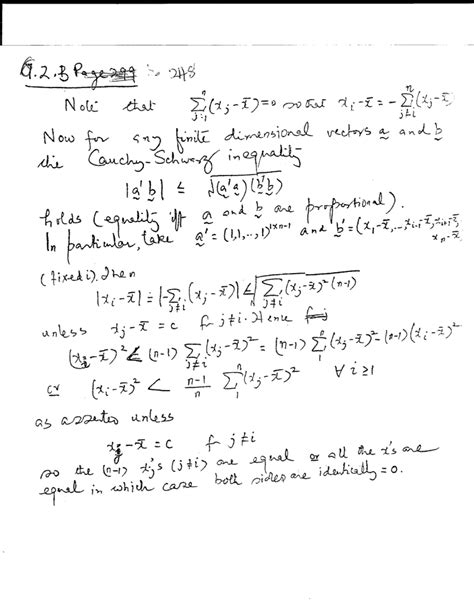 9.2.B Page 299 248
Note that Σ_{j=1}^{n} (x_j - x̄) = 0 so that x_i - x̄ = - Σ_{j≠i}^{n} (x_j - x̄)
Now for any finite dimensional vectors a and b
the Cauchy-Schwarz inequality
|a'b| ≤ √((a'a)(b'b))
holds (equality iff a and b are proportional).
In particular, take a' = (1,1,..,1)^{1×n-1} and b' = (x_1 - x̄, .. x_{i-1} - x̄, x_{i+1} - x̄,
x_n - x̄)
(fixed i). Then
|x_i - x̄| = |- Σ_{j≠i} (x_j - x̄)| ≤ √(Σ_{j≠i} (x_j - x̄)² (n-1))
unless x_j - x̄ = c for j≠i. Hence
(x_i - x̄)² < (n-1) Σ_{j≠i} (x_j - x̄)² = (n-1) Σ_1^n (x_j - x̄)² - (n-1)(x_i - x̄)²
or (x_i - x̄)² < (n-1)/n Σ_1^n (x_j - x̄)² ∀ i ≥ 1
as asserted unless
x_j - x̄ = c for j≠i
so the (n-1) x_j's (j≠i) are equal or all the x's are
equal in which case both sides are identically = 0.